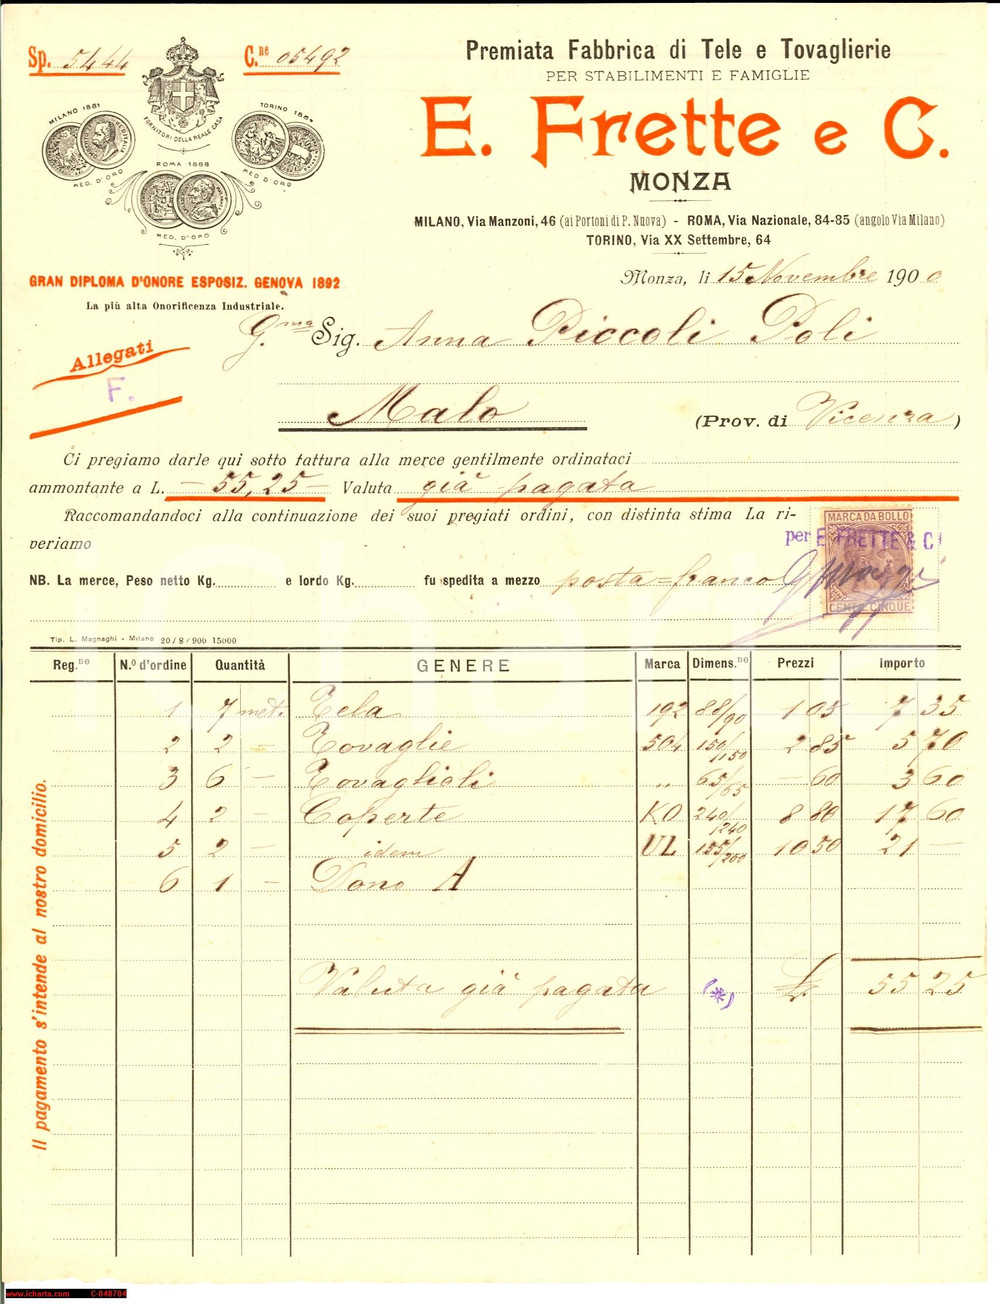 Sp. 5444
C.ne 05492
Premiata Fabbrica di Tele e Tovaglierie
PER STABILIMENTI E FAMIGLIE
E. Frette e C.
MONZA
MILANO, Via Manzoni, 46 (ai Portoni di P. Nuova) - ROMA, Via Nazionale, 84-85 (angolo Via Milano)
TORINO, Via XX Settembre, 64
MILANO 1881
MED. D'ORO
FORNITORI DELLA REALE CASA
TORINO 1884
MED. D'ORO
ROMA 1888
MED. D'ORO
GRAN DIPLOMA D'ONORE ESPOSIZ. GENOVA 1892
La più alta Onorificenza Industriale.
Monza, li 15 Novembre 1900
Allegati
F.
G.ma Sig. Anna Piccoli Poli
Malo
(Prov. di Vicenza)
Ci pregiamo darle qui sotto fattura alla merce gentilmente ordinataci
ammontante a L. — 55,25 — Valuta già pagata
Raccomandandoci alla continuazione dei suoi pregiati ordini, con distinta stima La ri-
veriamo
MARCA DA BOLLO
per E. FRETTE & C.
CENT. CINQUE
NB. La merce, Peso netto Kg. e lordo Kg. fu spedita a mezzo posta = franco
Tip. L. Magnaghi - Milano 20/8/900 15000
Reg.ne N.o d'ordine Quantità GENERE Marca Dimens.ne Prezzi Importo
1 7 met. Tela 192 88/90 1 05 7 35
2 2 — Tovaglie 504 150/150 2 85 5 70
3 6 — Tovaglioli „ 65/65 — 60 3 60
4 2 — Coperte KO 240/240 8 80 17 60
5 2 — idem UL 155/200 10 50 21 —
6 1 — Dono A
Valuta già pagata (*) £ 55 25
Il pagamento s'intende al nostro domicilio.
www.icharta.com C-048704